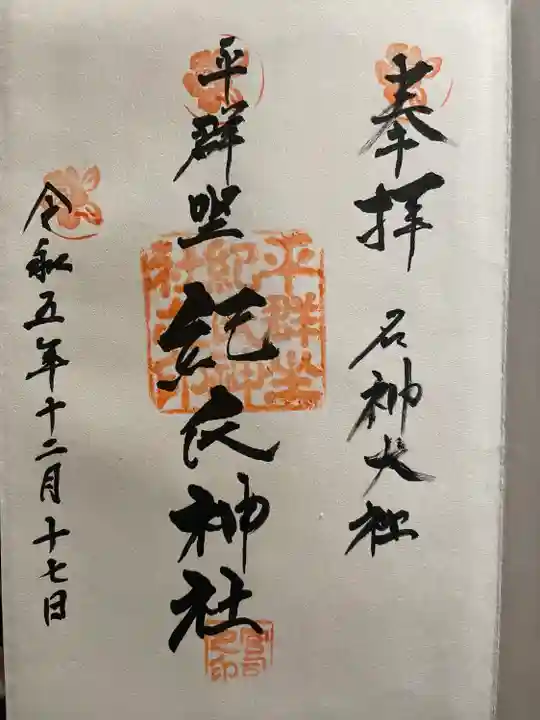 奉拝 名神大社
平群坐紀氏神社
平群坐
紀氏神
社之印
令和五年十二月十七日
宮司
之印